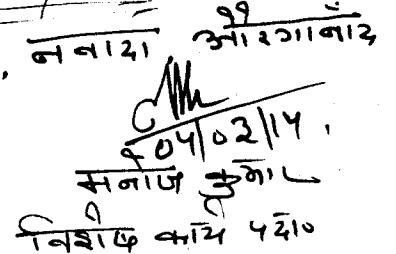 नवादा औरंगाबाद
04/03/14.
मनोज कुमार
विशेष कार्य पदा०